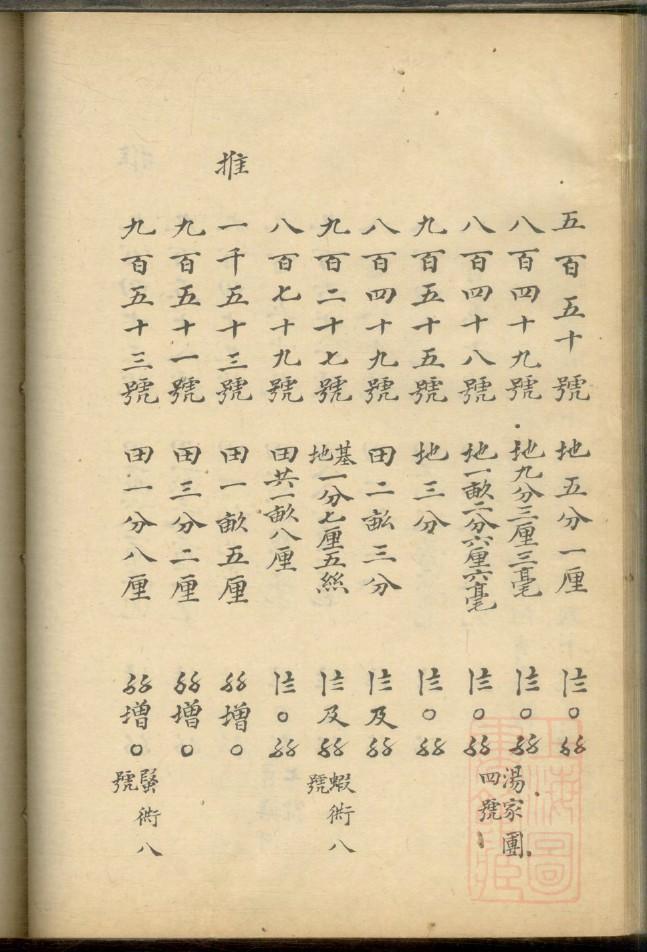 五百五十號 地五分一厘
八百四十九號 地九分三厘三毫 湯家團四號
八百四十八號 地一畝二分六厘六毫
九百五十五號 地三分
八百四十九號 田二畝三分 及
九百二十七號 基地一分七厘五絲 及 蝦衖八號
八百七十九號 田共一畝八厘
推
一千五十三號 田一畝五厘 增
九百五十一號 田三分二厘 增
九百五十三號 田一分八厘 增 衖八號
上海圖